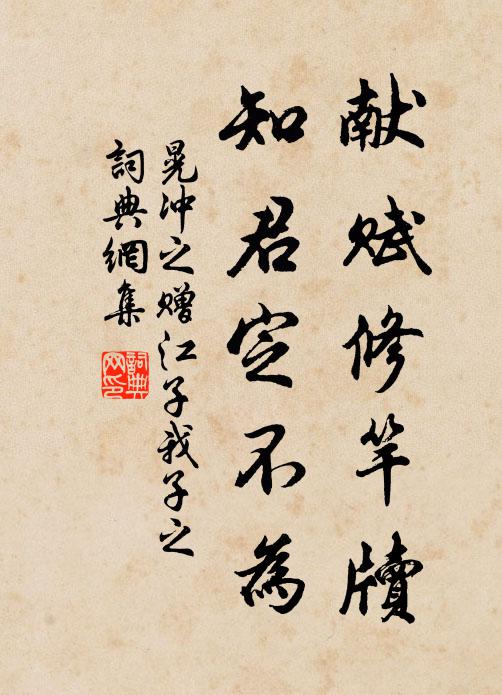 献赋修竿牍
知君定不为
晁冲之赠江子我子之
詞典網集
詞典
网印